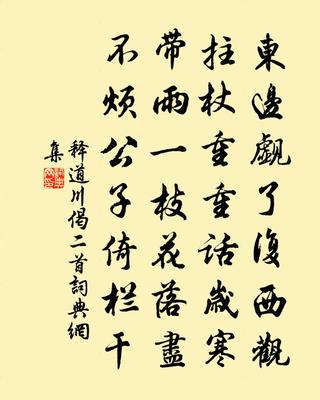 東邊觑了復西觀
拄杖重重話歲寒
帶雨一枝花落盡
不煩公子倚欄干
释道川偈二首詞典網
集